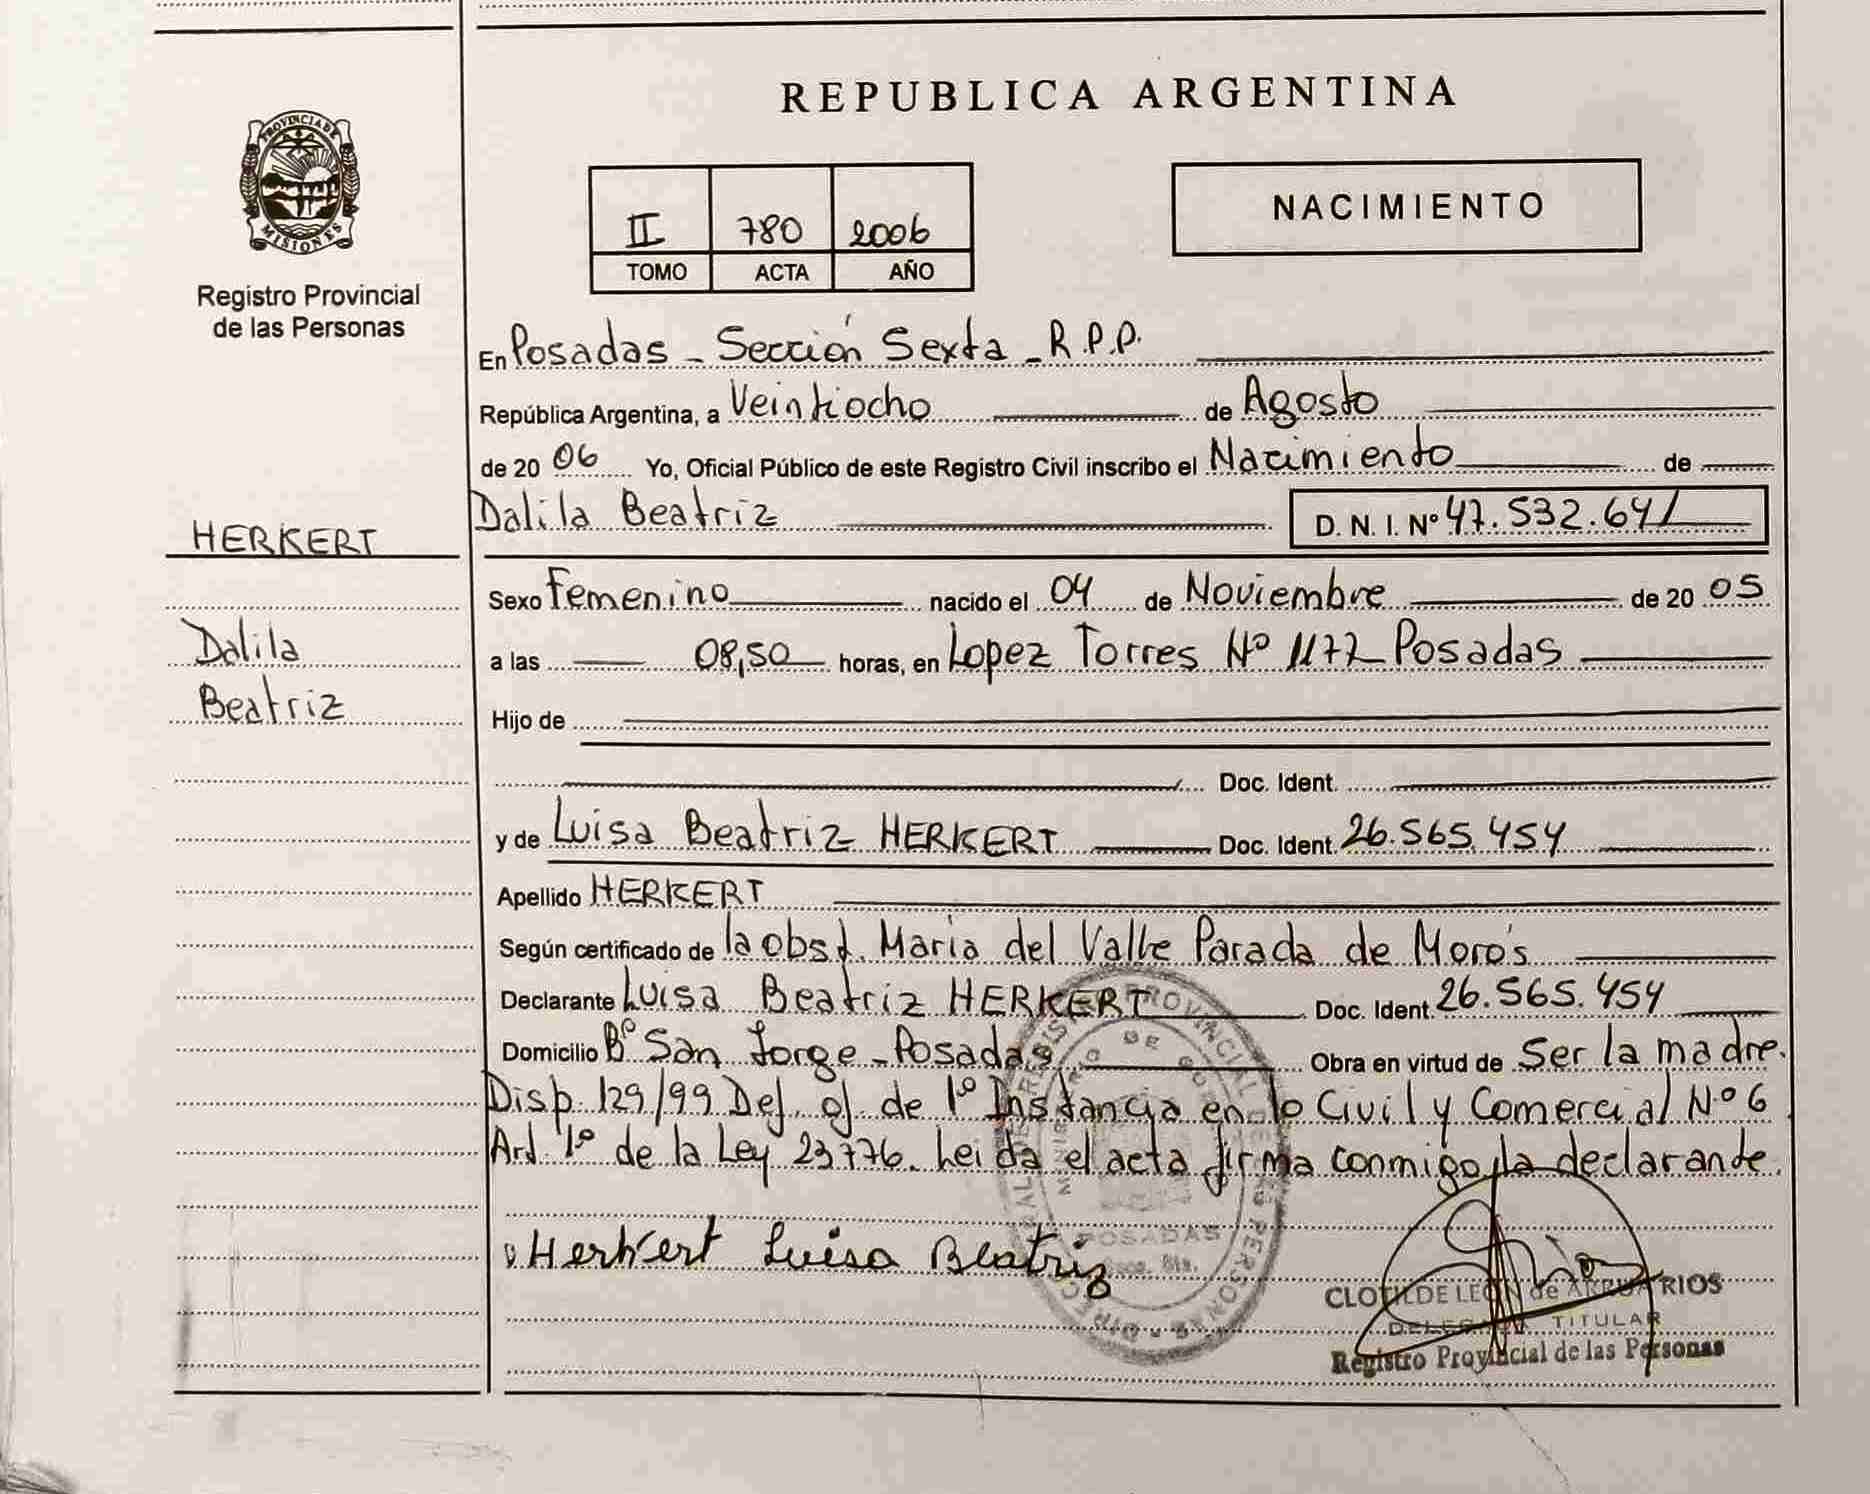 REPUBLICA ARGENTINA
PROVINCIA DE
MISIONES
Registro Provincial
de las Personas
II 780 2006
TOMO ACTA AÑO
NACIMIENTO
En Posadas - Sección Sexta - R.P.P.
República Argentina, a Veintiocho de Agosto
de 20 06 Yo, Oficial Público de este Registro Civil inscribo el Nacimiento de
HERKERT
Dalila Beatriz D. N. I. Nº 47.532.641
Sexo Femenino nacido el 04 de Noviembre de 20 05
Dalila
a las 08,50 horas, en Lopez Torres Nº 1177 Posadas
Beatriz
Hijo de
Doc. Ident.
y de Luisa Beatriz HERKERT Doc. Ident. 26.565.454
Apellido HERKERT
Según certificado de la obst. Maria del Valle Parada de Moro's
Declarante Luisa Beatriz HERKERT Doc. Ident. 26.565.454
Domicilio Bº San Jorge - Posadas Obra en virtud de Ser la madre.
Disp. 129/99 Def. of. de 1º Instancia en lo Civil y Comercial Nº 6
Art. 1º de la Ley 23776. Leida el acta firma conmigo la declarante.
Herkert Luisa Beatriz
POSADAS
CLOTILDE LEON de RIOS
DELEGADA TITULAR
Registro Provincial de las Personas